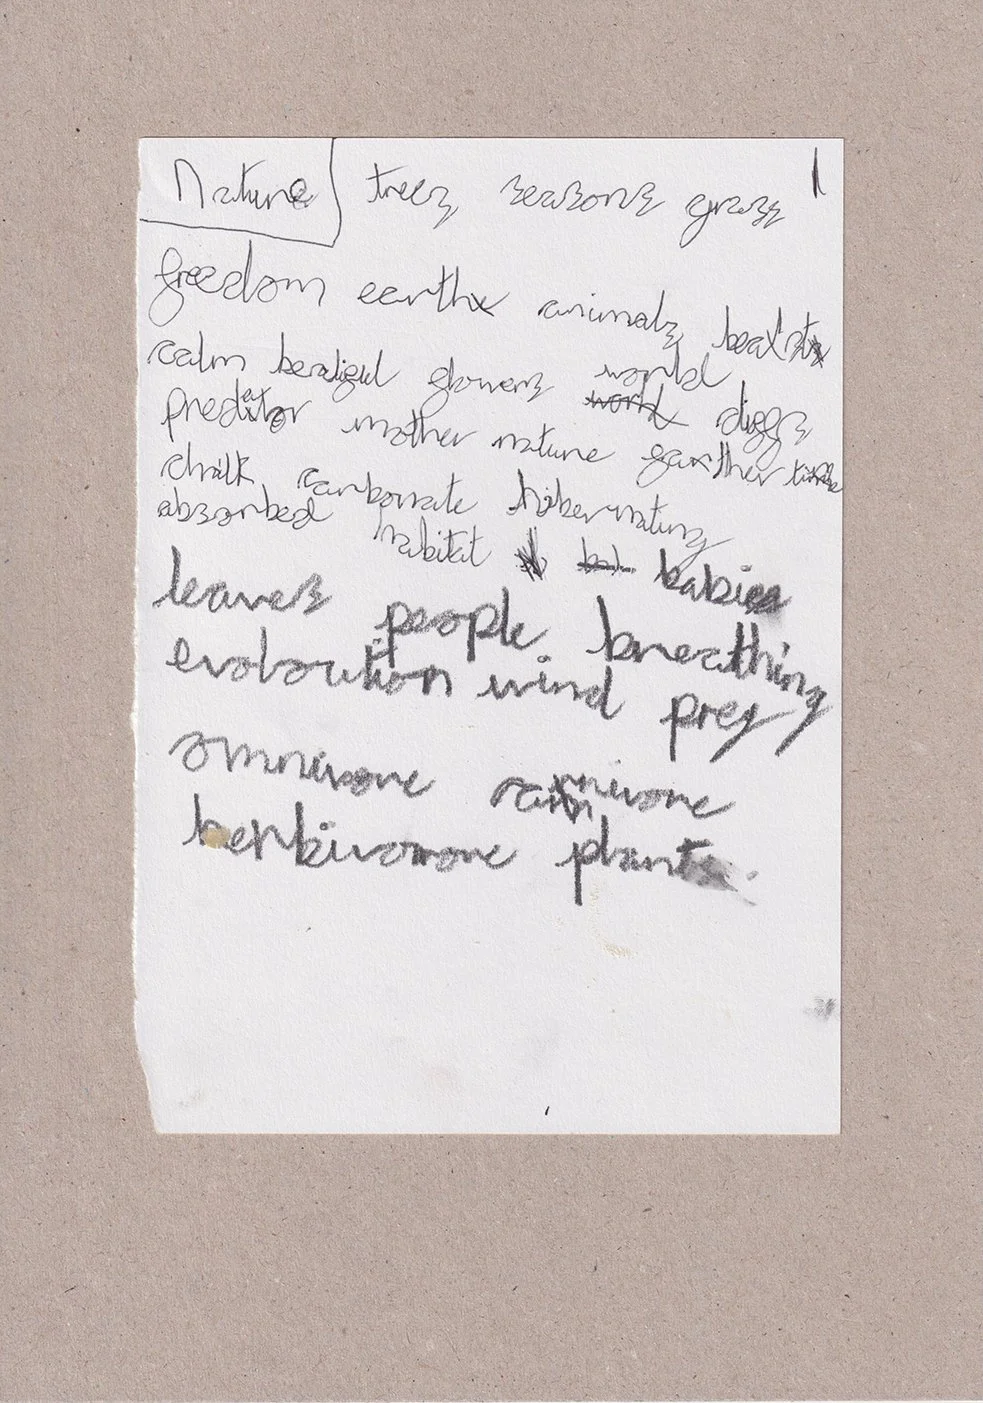 Nature trees seasons grass
freedom earth animals
calm beautiful flowers world
predator mother nature
chalk carbonate hibernating
absorbed habitat babies
leaves people breathing
evoloution wind prey
omnivore carnivore
herbivorore plants.